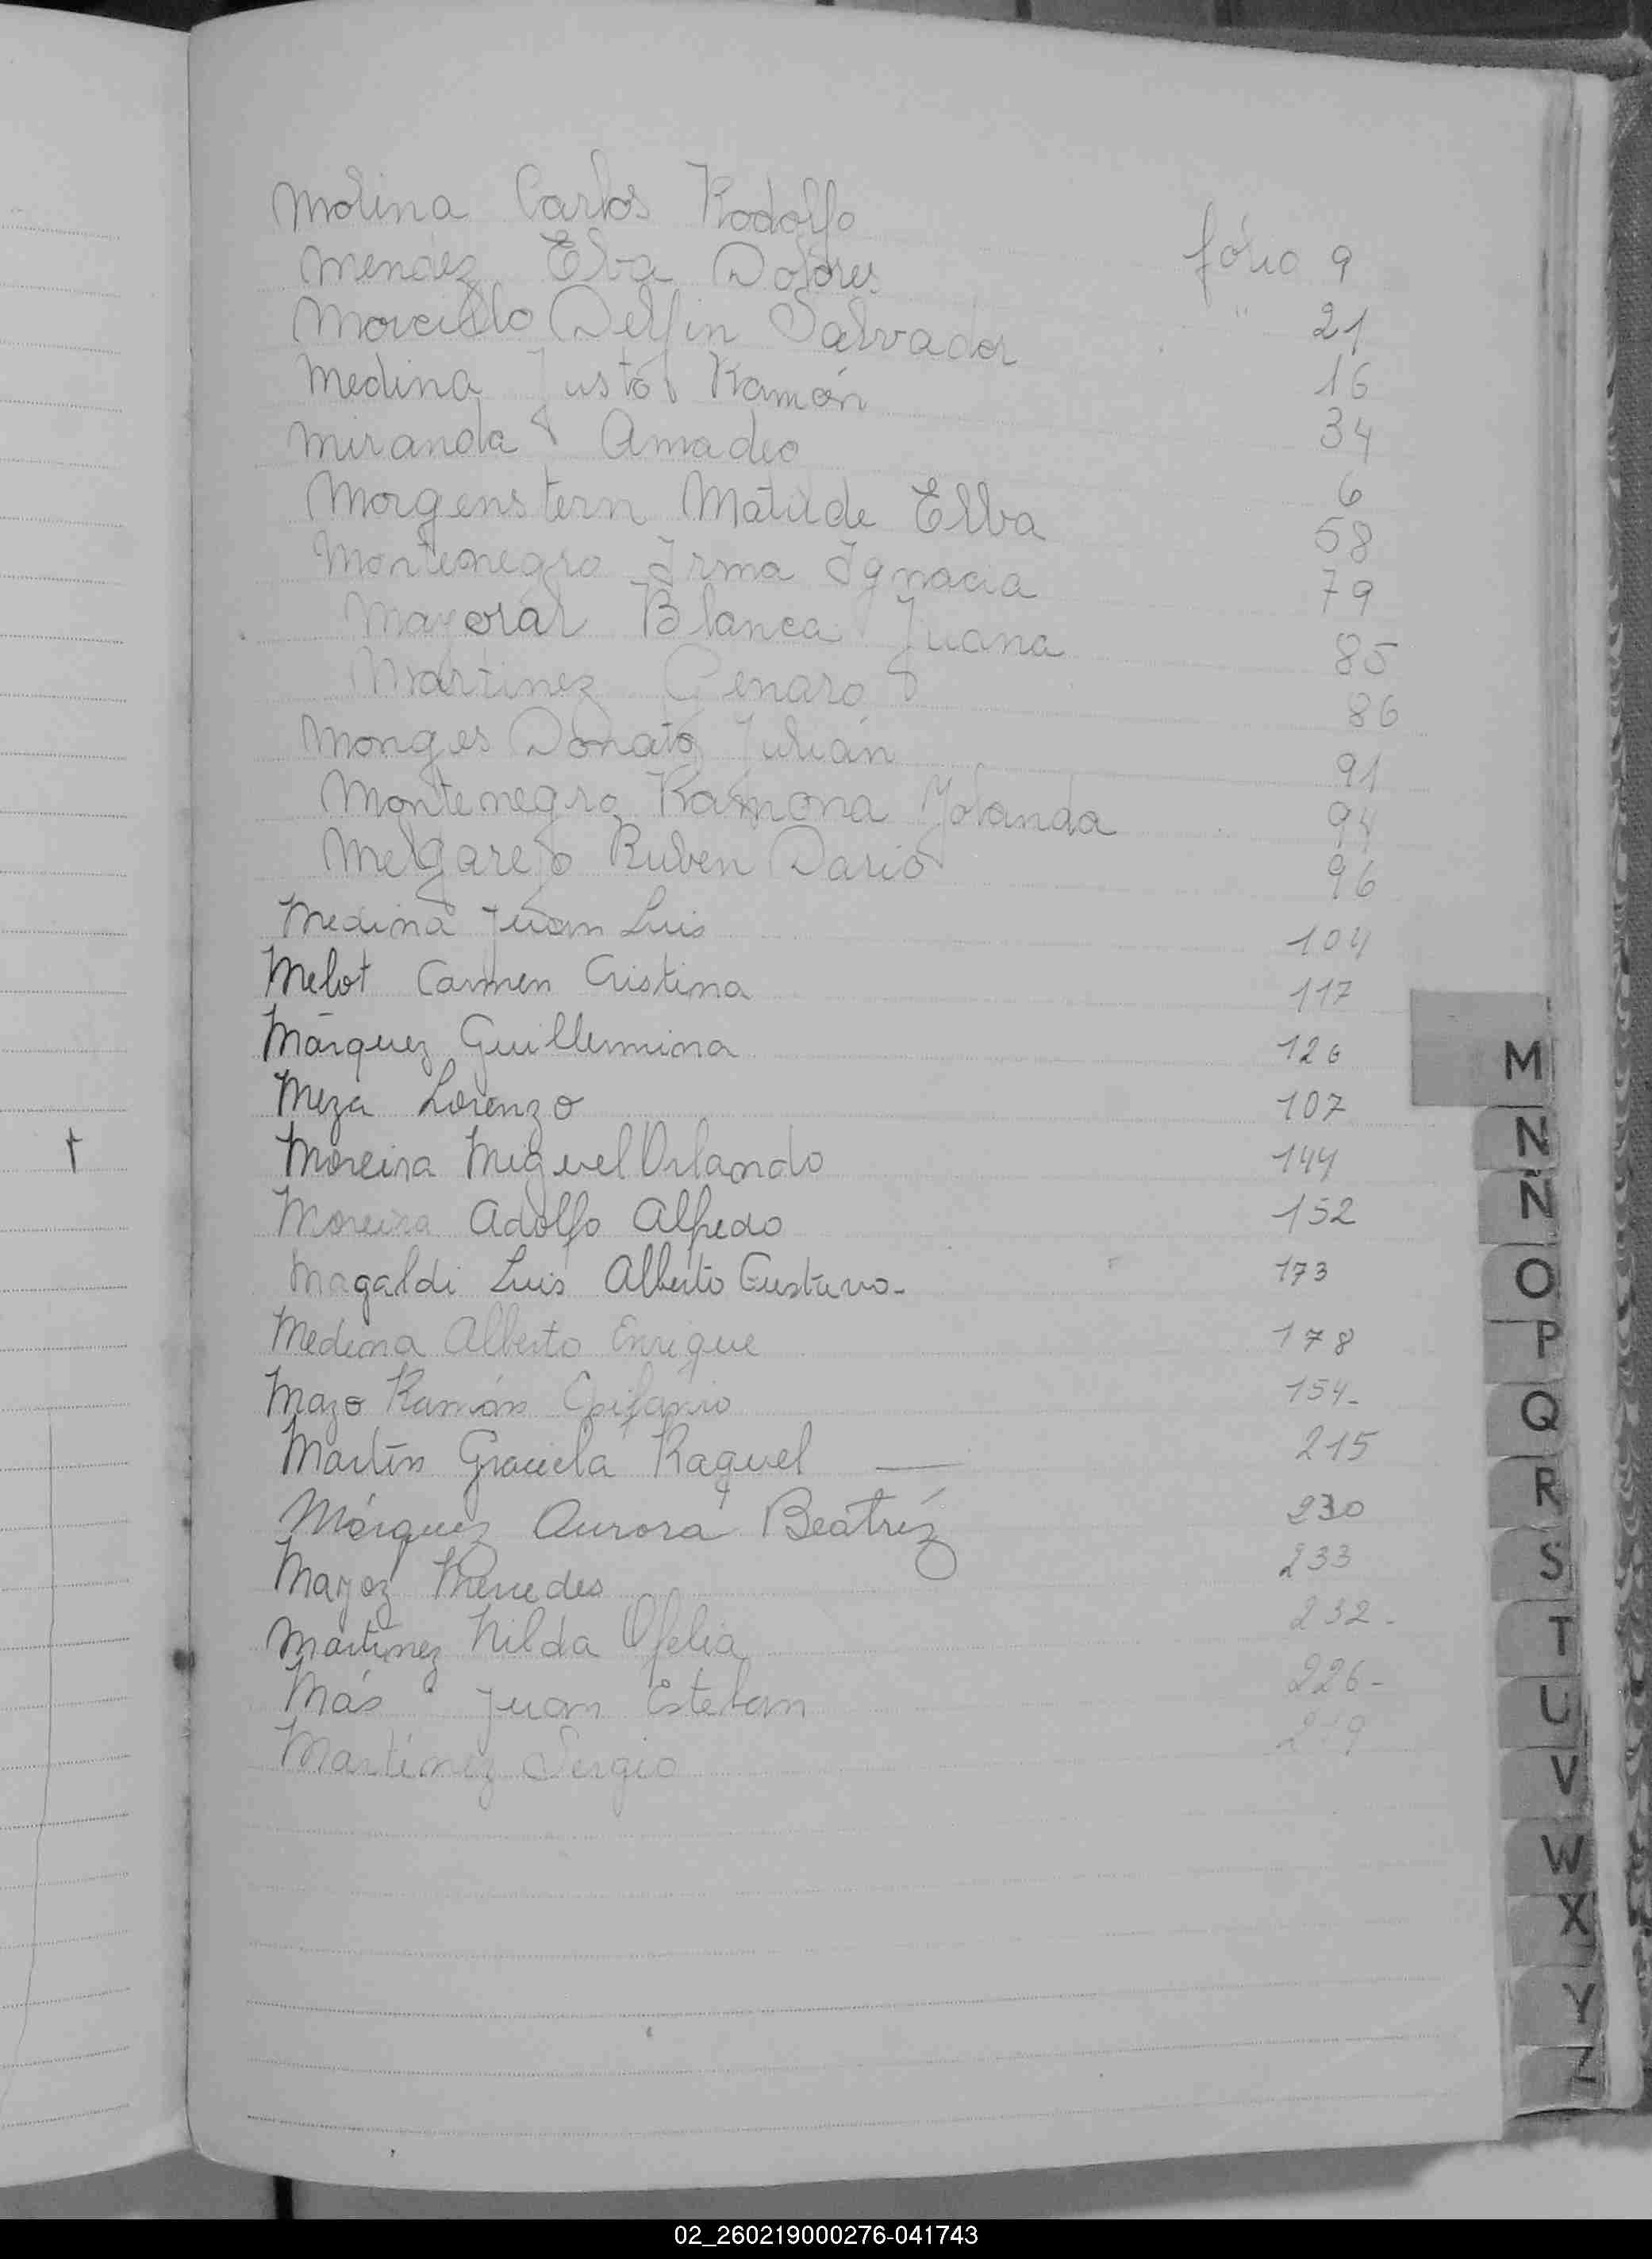 Molina Carlos Rodolfo fólio 9
Mendez Elva Dolores " 21
Morcillo Delfin Salvador 16
Medina Justo Ramón 34
Miranda Amadeo 6
Morgenstern Matilde Elba 58
Montenegro Irma Ignacia 79
Mayoral Blanca Juana 85
Martinez Genaro 86
Monges Donato Julián 91
Montenegro Ramona Yolanda 94
Melgarejo Ruben Dario 96
Medina Juan Luis 104
Melot Carmen Cristina 117
Márquez Guillermina 126
Meza Lorenzo 107
Moreira Miguel Orlando 144
Moreira Adolfo Alfredo 152
Magaldi Luis Alberto Gustavo- 173
Medina Alberto Enrique 178
Mazo Ramón Epifanio 154-
Martín Graciela Raquel — 215
Márquez Aurora Beatríz 230
Mercedes 233
Martínez Nilda Ofelia 232-
Más Juan Esteban 226-
Martínez Sergio
M
N
Ñ
O
P
Q
R
S
T
U
V
W
X
Y
Z
02_260219000276-041743